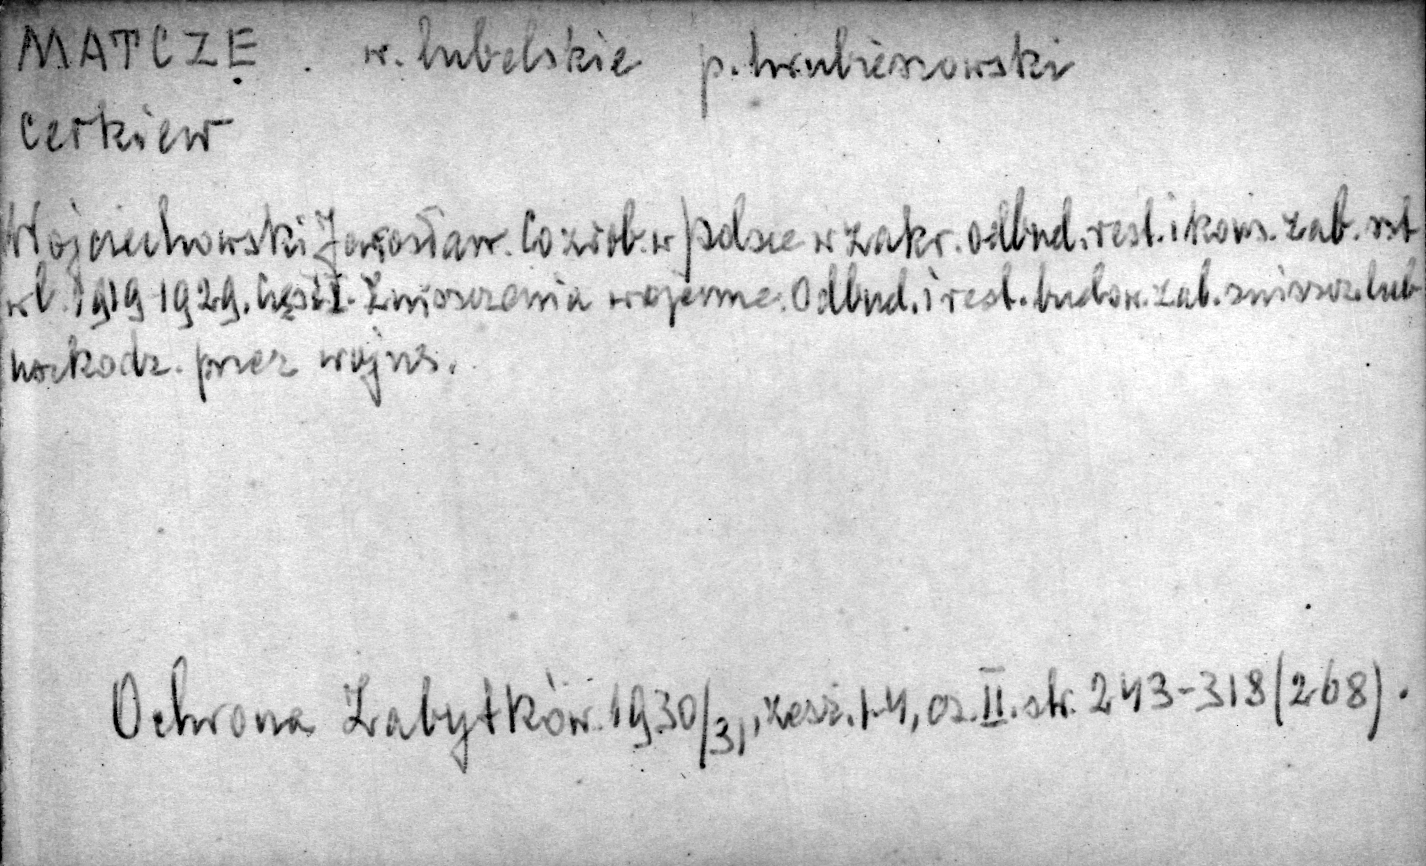 MATCZE . w. lubelskie p. hrubieszowski
Cerkiew
Wojciechowski Jarosław. Co zrob. w Polsce w zakr. odbud. rest. i kons. zab. szt
w l. 1919-1929. Część I. Zniszczenia wojenne. Odbud. i rest. budow. zab. zniszcz. lub
uszkodz. przez wojnę.
Ochrona Zabytków 1930/31, zesz. 1-4, cz. II. str. 243-318 (268).